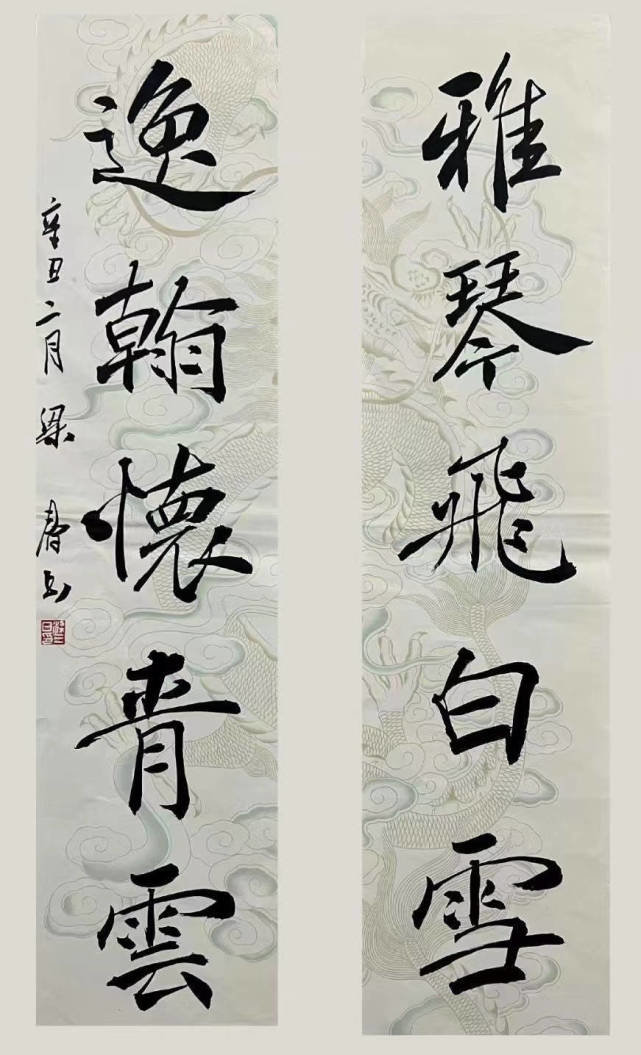 雅琴飛白雪
逸翰懷青雲
辛丑二月 梁